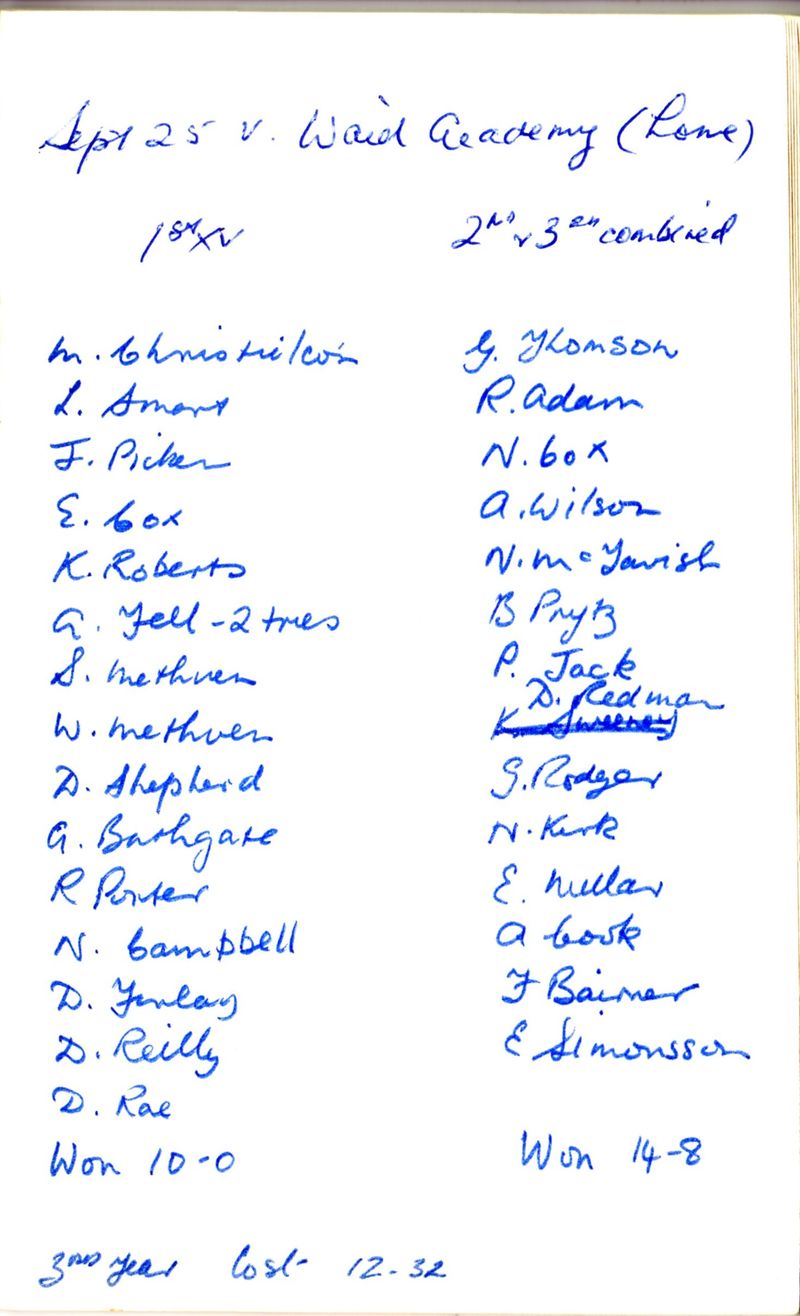 Sept 25 v. Waid Academy (Home)
1st XV
2nd & 3rd combined
M. Christieson
L. Smart
F. Picken
E. Cox
K. Roberts
G. Fell - 2 tries
S. Methven
W. Methven
D. Shepherd
G. Bathgate
R Porter
N. Campbell
D. Finlay
D. Reilly
D. Rae
Won 10-0
G. Thomson
R. Adam
N. Cox
A. Wilson
N. McTavish
B Prytz
P. Jack
D. Redman
K. Sweeney
G. Rodger
N. Kirk
E. Millar
A Cook
F Bairner
E Simonsson
Won 14-8
Year Lost 12-32